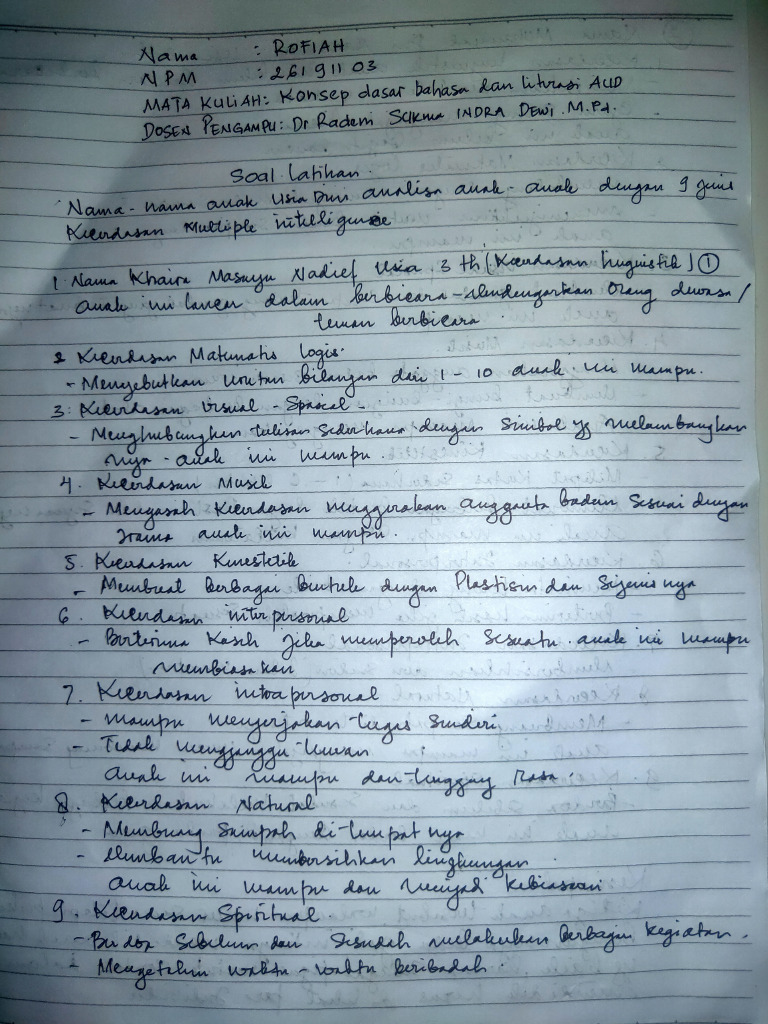 Nama : ROFIAH
NPM : 261 91 11 03
MATA KULIAH: Konsep dasar bahasa dan literasi AUD
DOSEN PENGAMPU: Dr Raden SUKMA INDRA DEWI. M.Pd.
Soal latihan.
Nama - nama anak Usia Dini analisa anak - anak dengan 9 jenis
Kecerdasan Multiple
1. Nama Khaira Nadief Usia 3 th (Kecerdasan linguistik) ①
anak ini lancar dalam berbicara - Mendengarkan Orang dewasa /
teman berbicara.
2 Kecerdasan Matematis logis.
- Menyebutkan urutan bilangan dari 1 - 10 anak ini mampu.
3. Kecerdasan Visual - Spasial -
- Menghubungkan tulisan Sederhana dengan Simbol yg melambangkan
nya - anak ini mampu.
4. Kecerdasan Musik
- Mengasah Kecerdasan menggerakan anggauta badan Sesuai dengan
Irama anak ini mampu.
5. Kecerdasan Kinestetik
- Membuat berbagai bentuk dengan Plastisin dan Sejenisnya
6. Kecerdasan interpersonal
- Berterima Kasih jika memperoleh Sesuatu. anak ini mampu
membiasakan
7. Kecerdasan intrapersonal
- mampu mengerjakan tugas Sendiri
- Tidak mengganggu teman
anak ini mampu dan tenggang rasa.
8. Kecerdasan Natural
- Membuang Sampah di tempat nya
- Membantu membersihkan lingkungan
anak ini mampu dan menjadi kebiasaan
9. Kecerdasan Spiritual.
- Berdoa Sebelum dan Sesudah melakukan berbagai kegiatan.
- Mengetahui waktu - waktu beribadah.